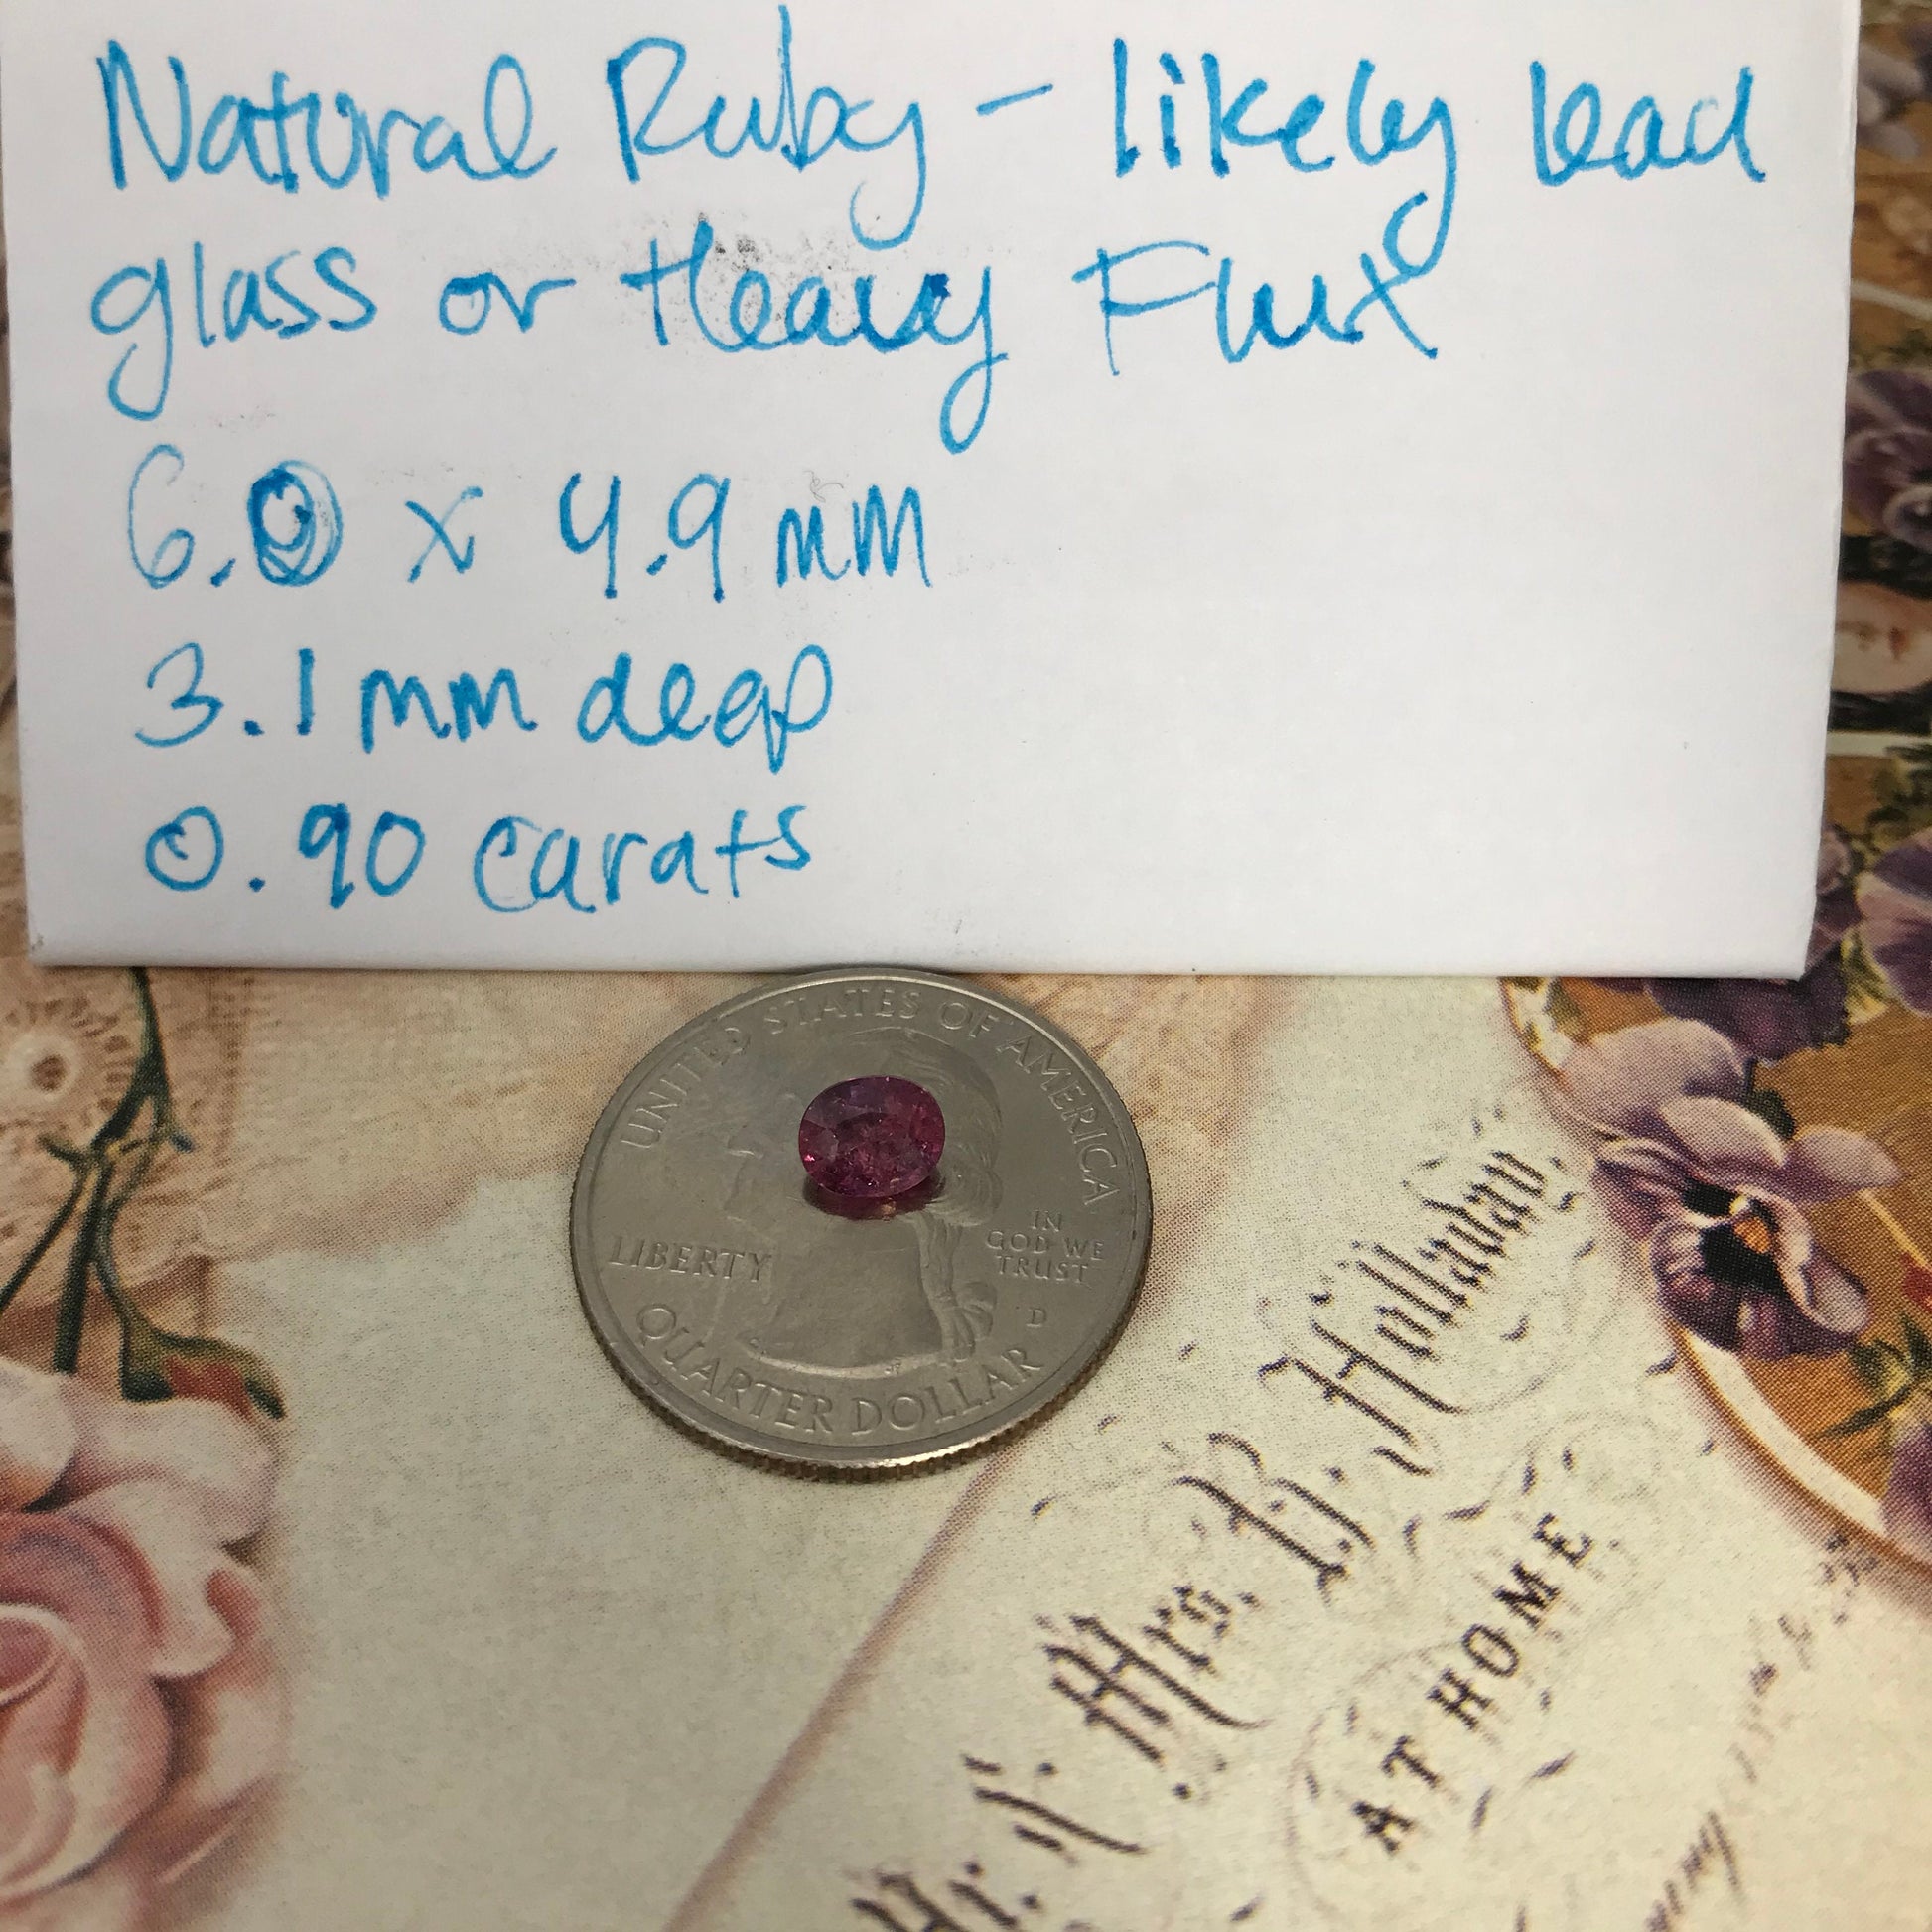 Natural Ruby - likely lead
glass or Heavy Flux
6.0 x 4.9 mm
3.1 mm deep
0.90 carats
UNITED STATES OF AMERICA
LIBERTY
IN
GOD WE
TRUST
D
QUARTER DOLLAR
Mrs. B. Holladay
AT HOME